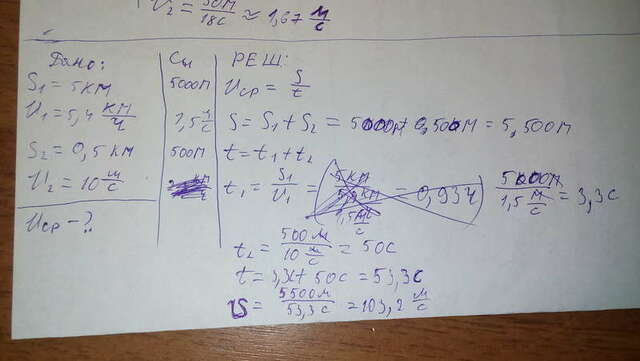 υ₂ = 30м/18с ≈ 1,67 м/с
Дано:
S₁ = 5 км
υ₁ = 5,4 км/ч
S₂ = 0,5 км
υ₂ = 10 м/с
υср - ?
Си
5000м
1,5 м/с
500м
РЕШ:
υср = S/t
S = S₁ + S₂ = 5000м + 0,500м = 5,500м
t = t₁ + t₂
t₁ = S₁/υ₁ = 5км = 0,93ч 5000м/1,5 м/с = 3,3с
t₂ = 500м/10 м/с = 50с
t = 3,3с + 50с = 53,3с
υ = 5500м/53,3с = 103,2 м/с